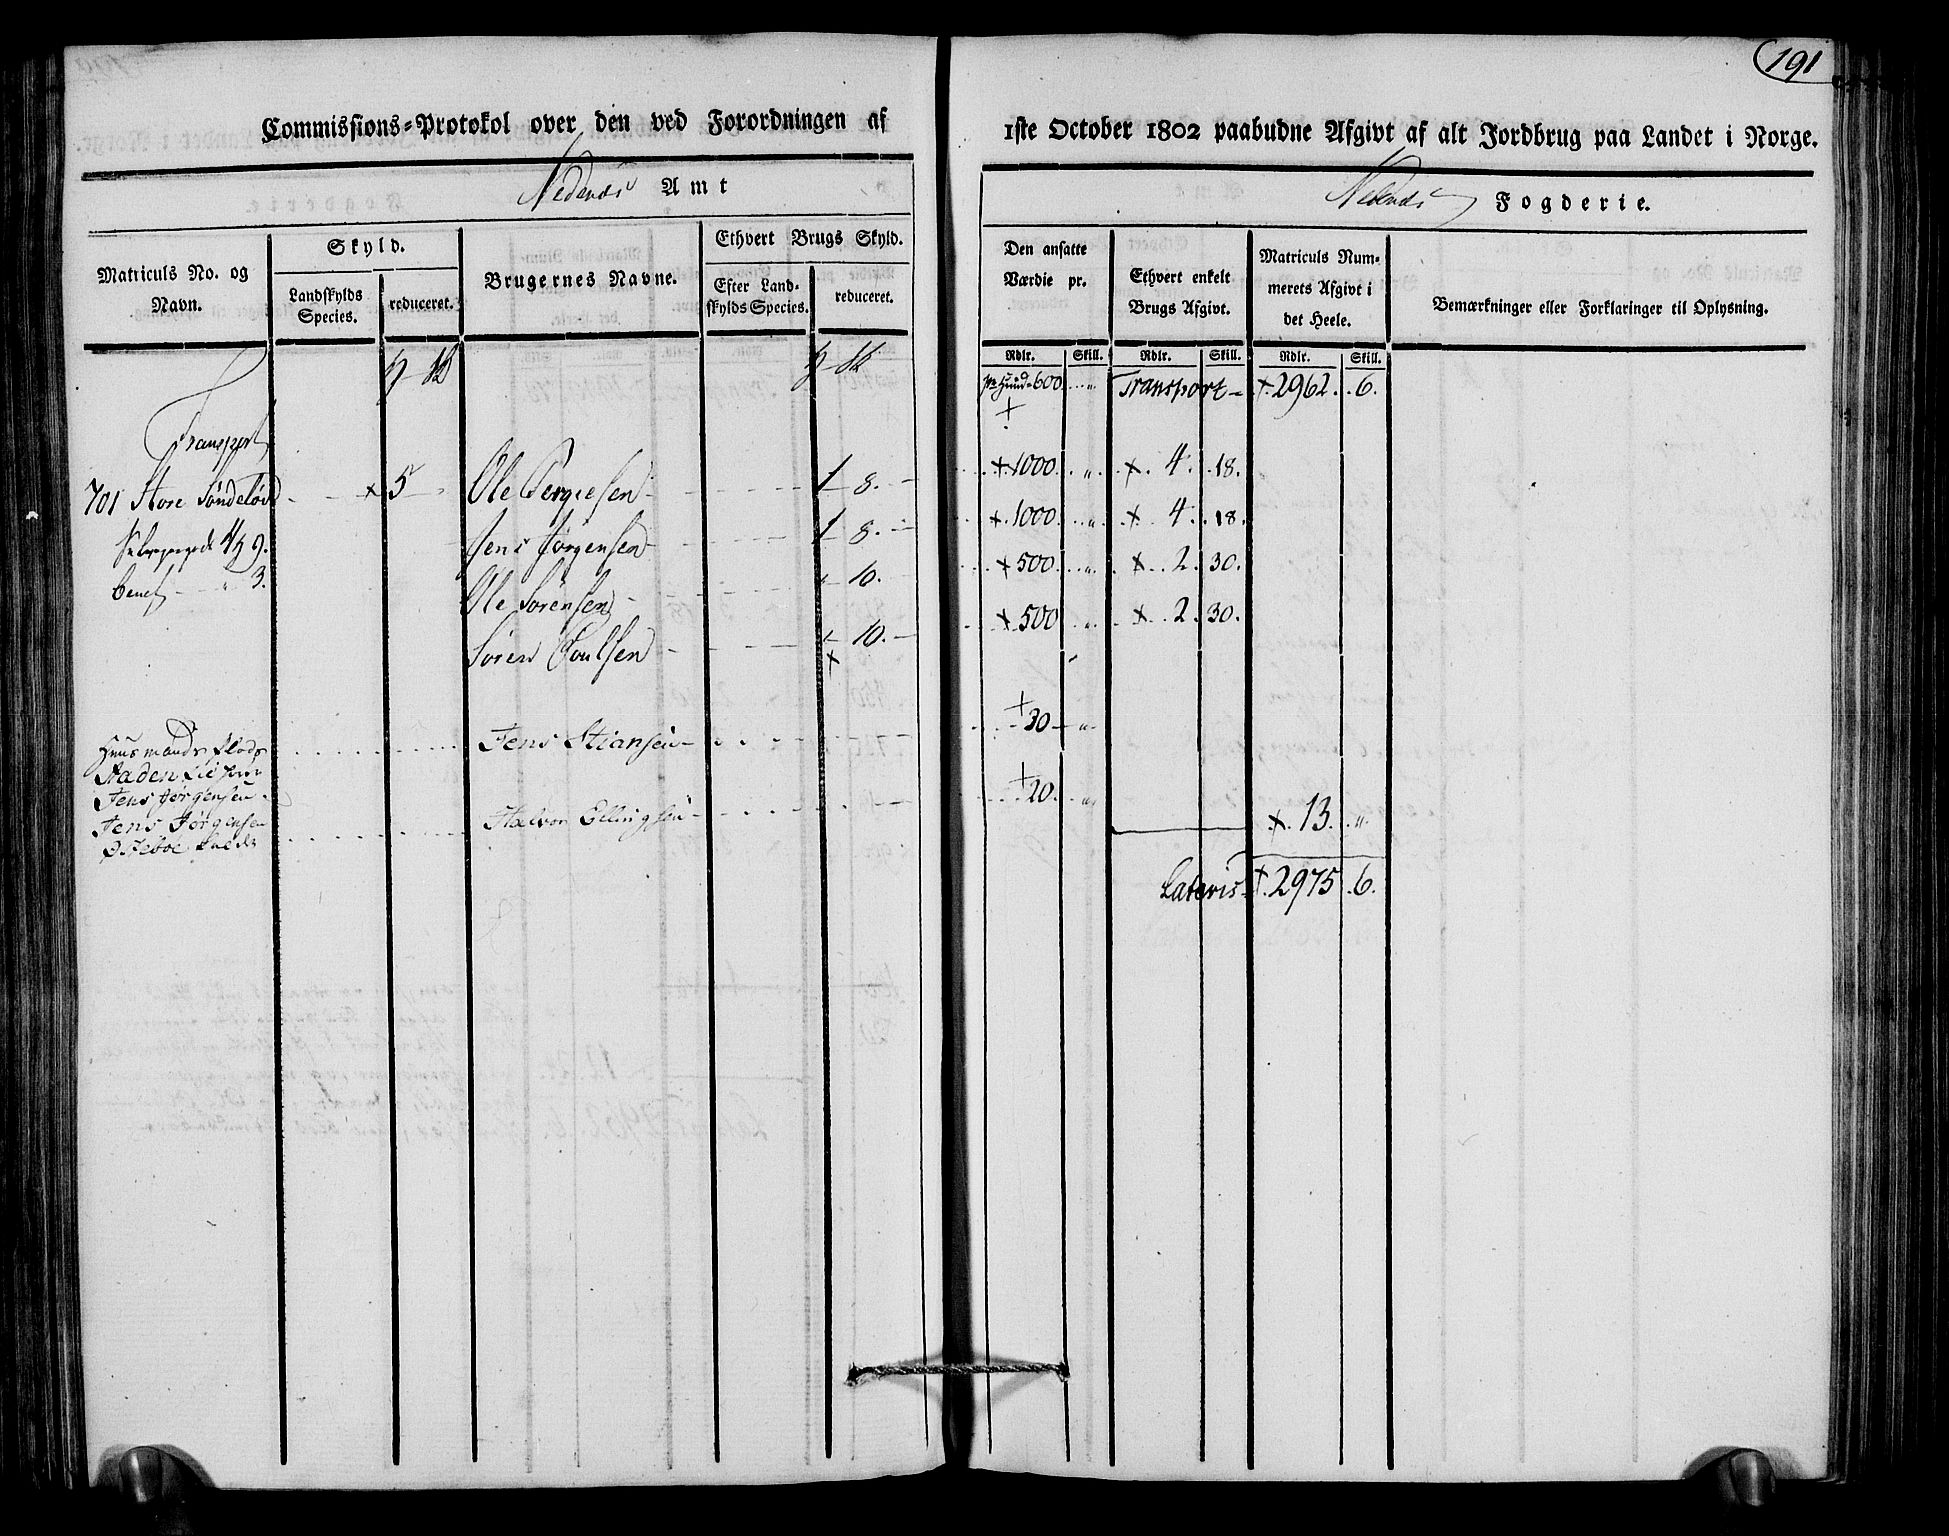 191
Commissions-Protokol over den ved Forordningen af
1ste October 1802 paabudne Afgivt af alt Jordbrug paa Landet i Norge.
Nedenæs Amt
Nedenæs Fogderie.
Matriculs No. og Navn.
Skyld.
Landskylds Species.
reduceret.
Brugernes Navne.
Ethvert Brugs Skyld.
Efter Landskylds Species.
reduceret.
Den ansatte Værdie pr.
Ethvert enkelt Brugs Afgivt.
Matriculs Nummerets Afgivt i det Heele.
Bemærkninger eller Forklaringer til Oplysning.
Rdlr. Skill. Rdlr. Skill. Rdlr. Skill.
600 " Transport - + 2962. 6.
Transport
701 Store Söndelöv + 5 Ole Tergiesen 1 8. + 1000 " + 4. 18.
Jens Jörgensen 1 8. + 1000 " + 4. 18.
Ole Sörensen " 10. + 500 " + 2. 30.
Sören Poulsen " 10. + 500 " + 2. 30.
Huusmands Plads Jens Stiansen + 30 "
Jens Jörgensen
Jens Jörgensen Halvor Ellingsen + 20. "
+ 13. "
Lateris + 2975. 6.